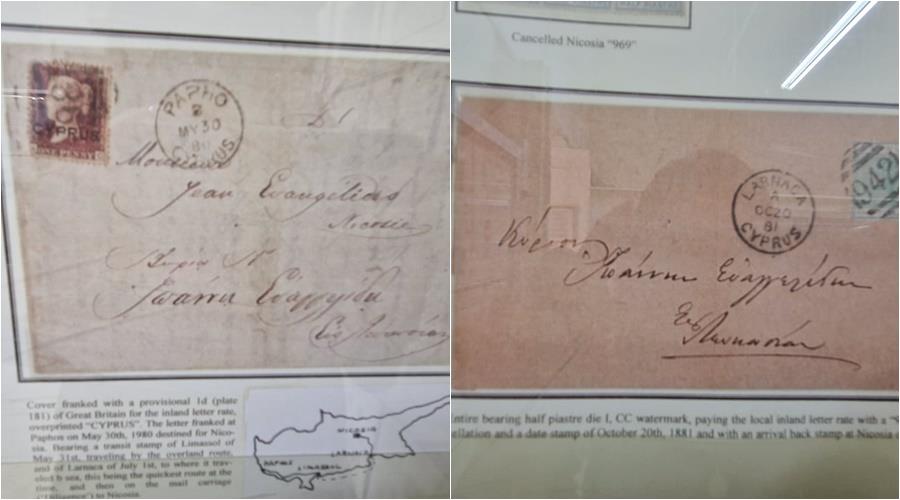 CYPRUS
ONE PENNY
PAPHO
MY 30
80
CYPRUS
Monsieur
Jean Evangélides
Nicosie
Ἰωάννῃ Εὐαγγελίδῃ
Εἰς Λευκωσίαν
Cover franked with a provisional 1d (plate
181) of Great Britain for the inland letter rate,
overprinted "CYPRUS". The letter franked at
Paphon on May 30th, 1980 destined for Nico-
sia. Bearing a transit stamp of Limassol of
May 31st, traveling by the overland route,
and of Larnaca of July 1st, to where it trav-
eled b sea, this being the quickest route at the
time, and then on the mail carriage
("Diligence") to Nicosia.
NICOSIA
LARNACA
PAPHOS
LIMASSOL
Cancelled Nicosia "969"
LARNACA
A
OC 20
81
CYPRUS
942
Κύριον
Ἰωάννην Εὐαγγελίδην
Εἰς Λευκωσίαν
Entire bearing half piastre die I, CC watermark, paying the local inland letter rate with a
ellation and a date stamp of October 20th, 1881 and with an arrival back stamp at Nicosia